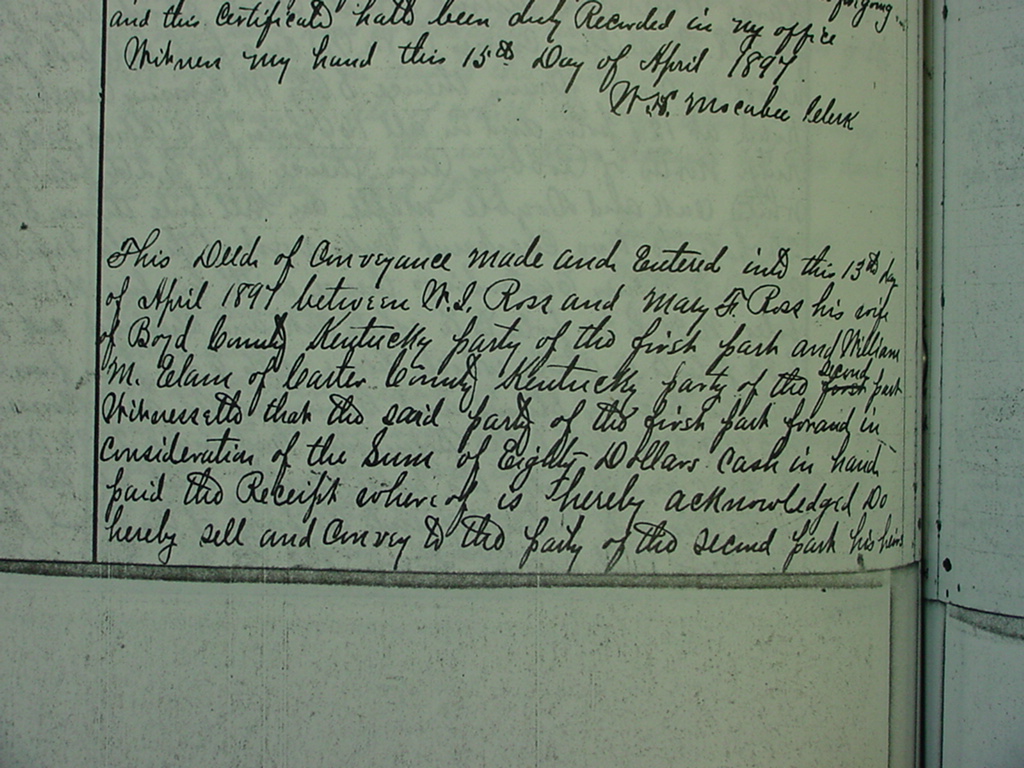 foregoing
and this Certificate hath been duly Recorded in my office
Witness my hand this 15th Day of April 1897
W.H. Mocabee Clerk
This Deed of Conveyance made and Entered into this 13th day
of April 1897 between W.S. Ross and Mary F. Ross his wife
of Boyd County Kentucky party of the first part and William
M. Elam of Carter County Kentucky party of the first second part
Witnesseth that the said party of the first part for and in
Consideration of the Sum of Eighty Dollars cash in hand
paid the Receipt whereof is hereby acknowledged Do
hereby sell and Convey to the party of the second part his heirs